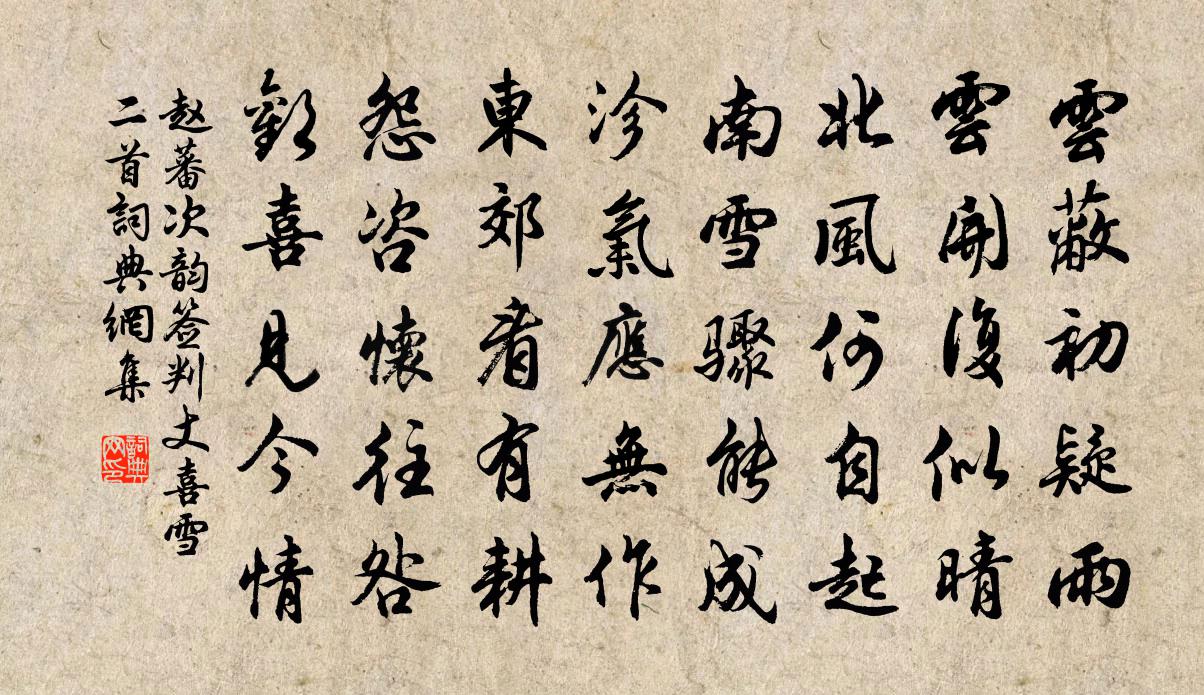 雲蔽初疑雨
雲開復似晴
北風何自起
南雪驟能成
沴氣應無作
東郊看有耕
怨咨懷往咎
歡喜見今情
赵蕃次韵签判丈喜雪
二首詞典網集
詞典
网印